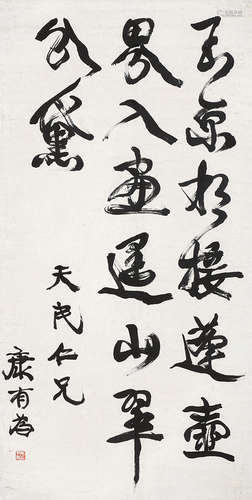 玉京相接蓬壺
界入畫遥山翠
分黛
天民仁兄
康有為